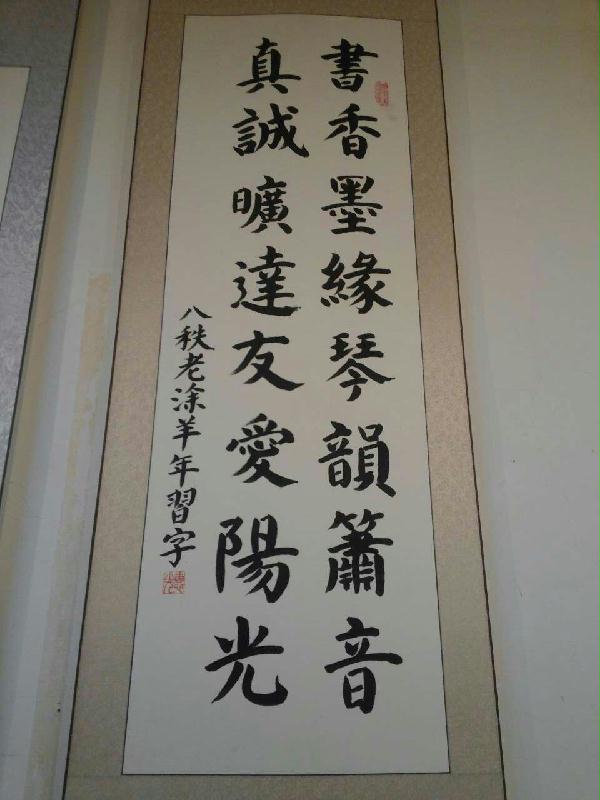 書香墨緣琴韻簫音
真誠曠達友愛陽光
八秩老涂羊年習字